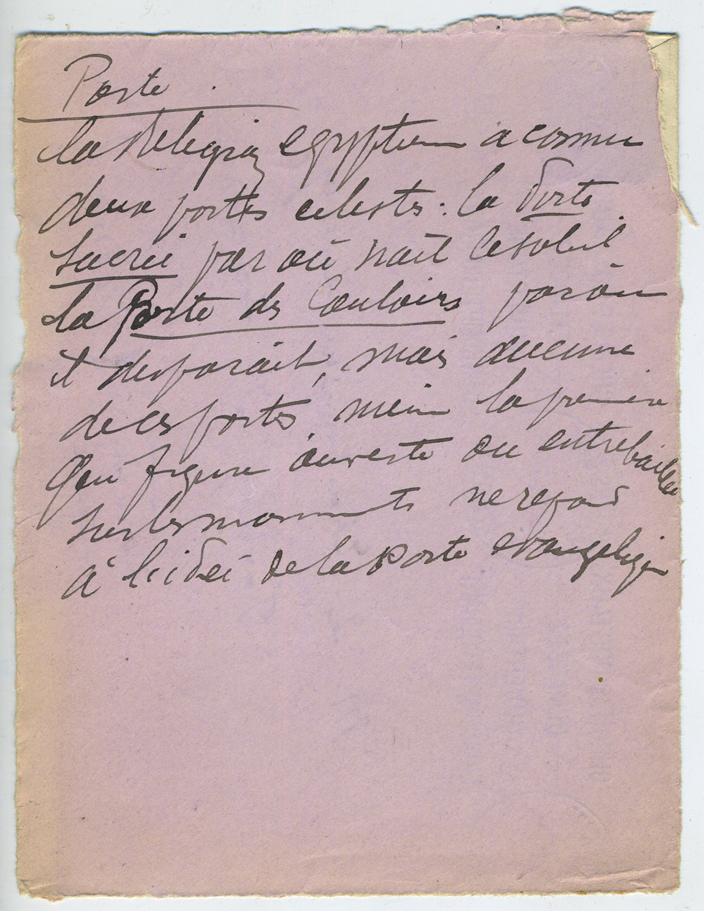 Porte.
la Religion egyptienne a connu
deux portes celestes : la Porte
Sacrée par où naît le soleil
la Porte des Couloirs par où
il disparait, mais aucune
de ces portes, meme la premiere
qu'on figure ouverte ou entrebaillée
sur les monuments ne repond
à l'idée de la Porte evangelique